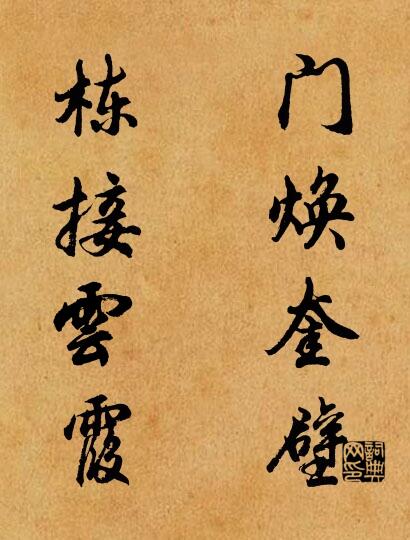 门焕奎壁
栋接雲霞
詞典網印